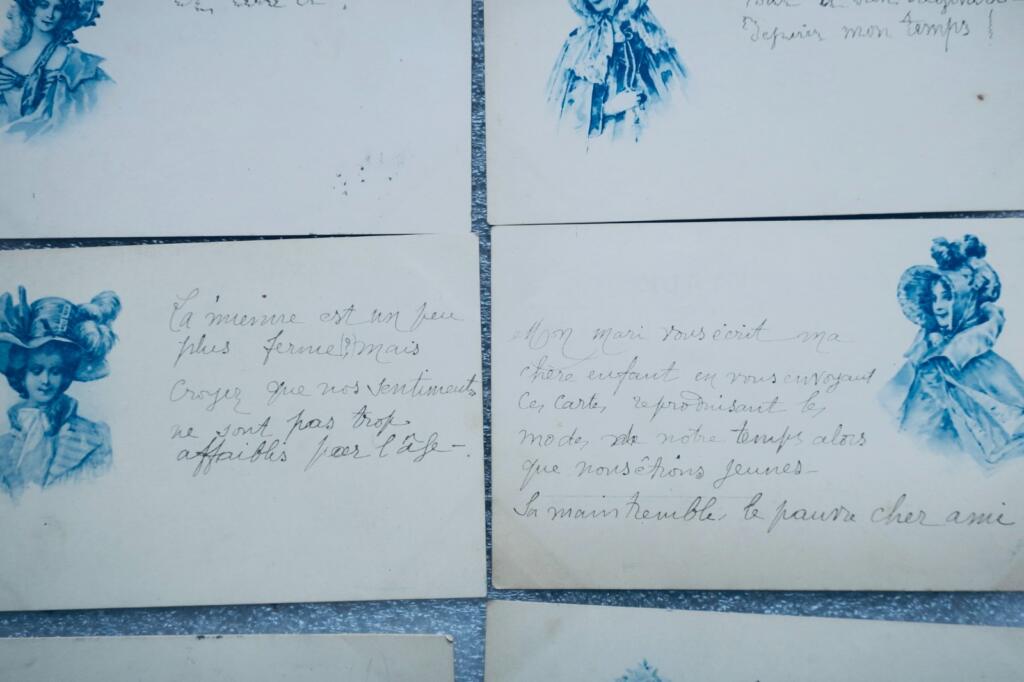 mon temps !
La mienne est un peu
plus ferme, mais
croyez que nos sentiments
ne sont pas trop
affaiblis par l'âge -.
Mon mari vous écrit ma
chère enfant en vous envoyant
ces cartes reproduisant les
modes de notre temps alors
que nous étions jeunes -
Sa main tremble, le pauvre cher ami